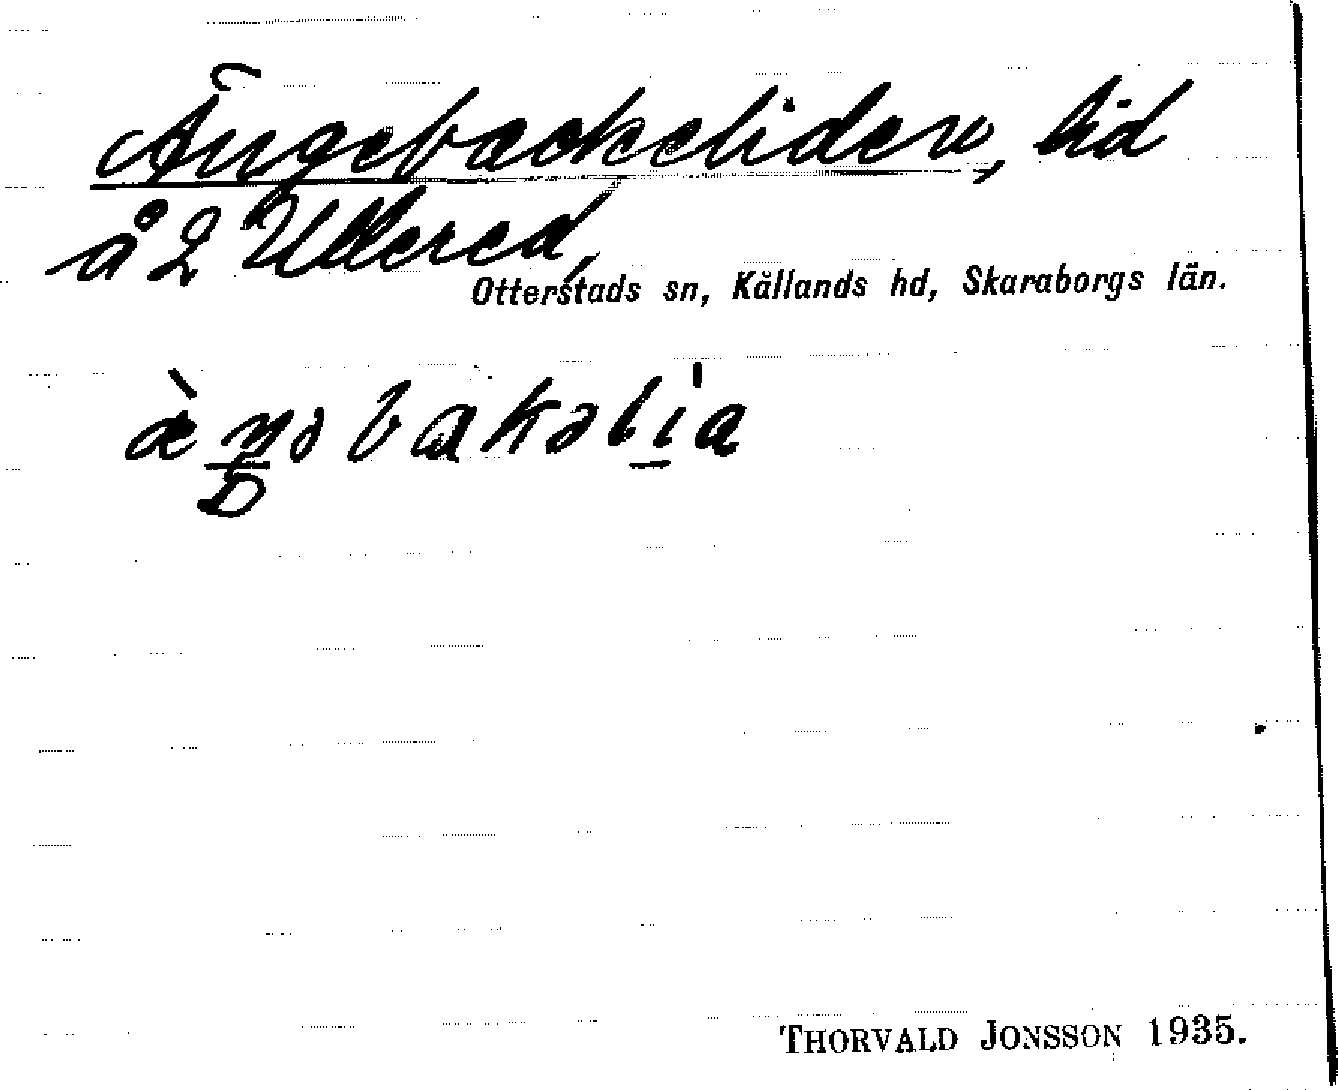 Ängebackeliden, lid
å 2 Ullered,
Otterstads sn, Kållands hd, Skaraborgs län.
THORVALD JONSSON 1935.